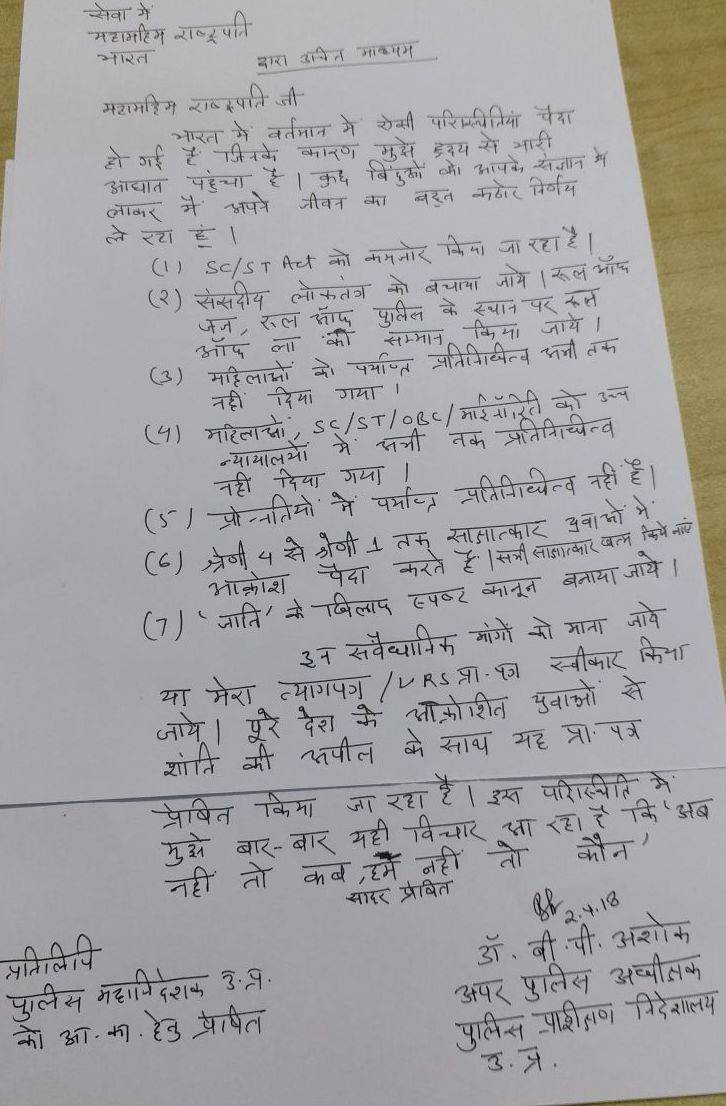 सेवा में
महामहिम राष्ट्रपति
भारत
द्वारा उचित माध्यम
महामहिम राष्ट्रपति जी
भारत में वर्तमान में ऐसी परिस्थितियां पैदा
हो गई हैं जिनके कारण मुझे हृदय से भारी
आघात पहुंचा है। कुछ बिंदुओं को आपके संज्ञान में
लाकर मैं अपने जीवन का बहुत कठोर निर्णय
ले रहा हूं।
(1) SC/ST Act को कमजोर किया जा रहा है।
(2) संसदीय लोकतंत्र को बचाया जाये। रूल ऑफ
जज, रूल ऑफ पुलिस के स्थान पर रूल
ऑफ ला को सम्मान किया जाये।
(3) महिलाओं को पर्याप्त प्रतिनिधित्व अभी तक
नहीं दिया गया।
(4) महिलाओं, SC/ST/OBC/माईनॉरिटी को उच्च
न्यायालयों में अभी तक प्रतिनिधित्व
नहीं दिया गया।
(5) प्रोन्नतियों में पर्याप्त प्रतिनिधित्व नहीं है।
(6) श्रेणी 4 से श्रेणी 1 तक साक्षात्कार युवाओं में
आक्रोश पैदा करते हैं। सभी साक्षात्कार खत्म किये जाएं
(7) 'जाति' के खिलाफ स्पष्ट कानून बनाया जाये।
इन संवैधानिक मांगों को माना जाये
या मेरा त्यागपत्र/VRS प्रा. पत्र स्वीकार किया
जाये। पूरे देश के आक्रोशित युवाओं से
शांति की अपील के साथ यह प्रा. पत्र
प्रेषित किया जा रहा है। इस परिस्थिति में
मुझे बार-बार यही विचार आ रहा है कि 'अब
नहीं तो कब, हम नहीं तो कौन'
सादर प्रेषित
2.4.18
डॉ. बी.पी. अशोक
अपर पुलिस अधीक्षक
पुलिस प्रशिक्षण निदेशालय
उ. प्र.
प्रतिलिपि
पुलिस महानिदेशक उ.प्र.
को आ. का. हेतु प्रेषित